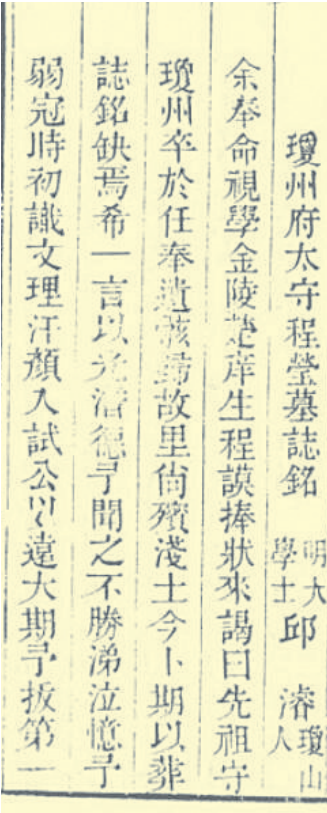 瓊州府太守程瑩墓誌銘 明大學士 邱濬 瓊山人
余奉命視學金陵楚庠生程謨捧狀來謁曰先祖守
瓊州卒於任奉遺骸歸故里尙殯淺土今卜期以葬
誌銘缺焉希一言以光潛德予聞之不勝涕泣憶予
弱冠時初識文理汗顏入試公以遠大期予拔第一